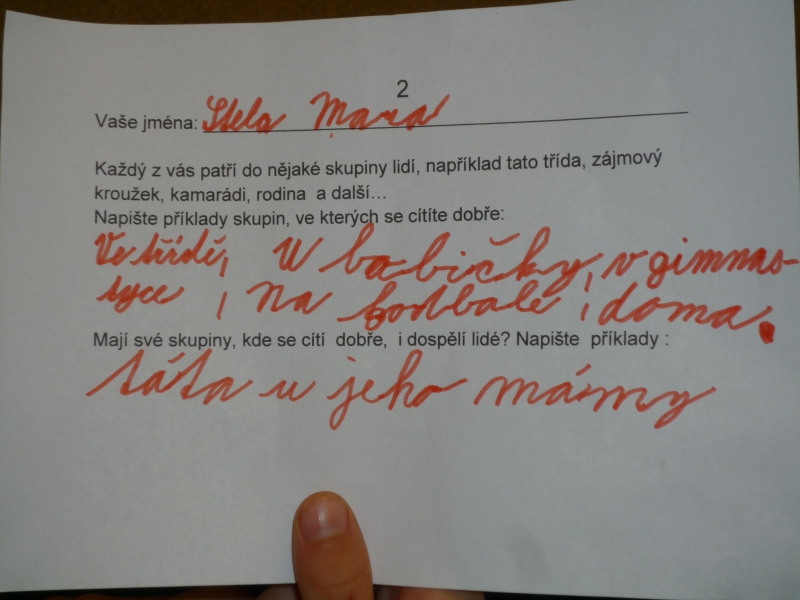 2
Vaše jména: Stela Mara
Každý z vás patří do nějaké skupiny lidí, například tato třída, zájmový
kroužek, kamarádi, rodina a další...
Napište příklady skupin, ve kterých se cítíte dobře:
Ve třídě, U babičky, v gimnas-
tyce, na fodbale, doma.
Mají své skupiny, kde se cítí dobře, i dospělí lidé? Napište příklady :
táta u jeho mámy